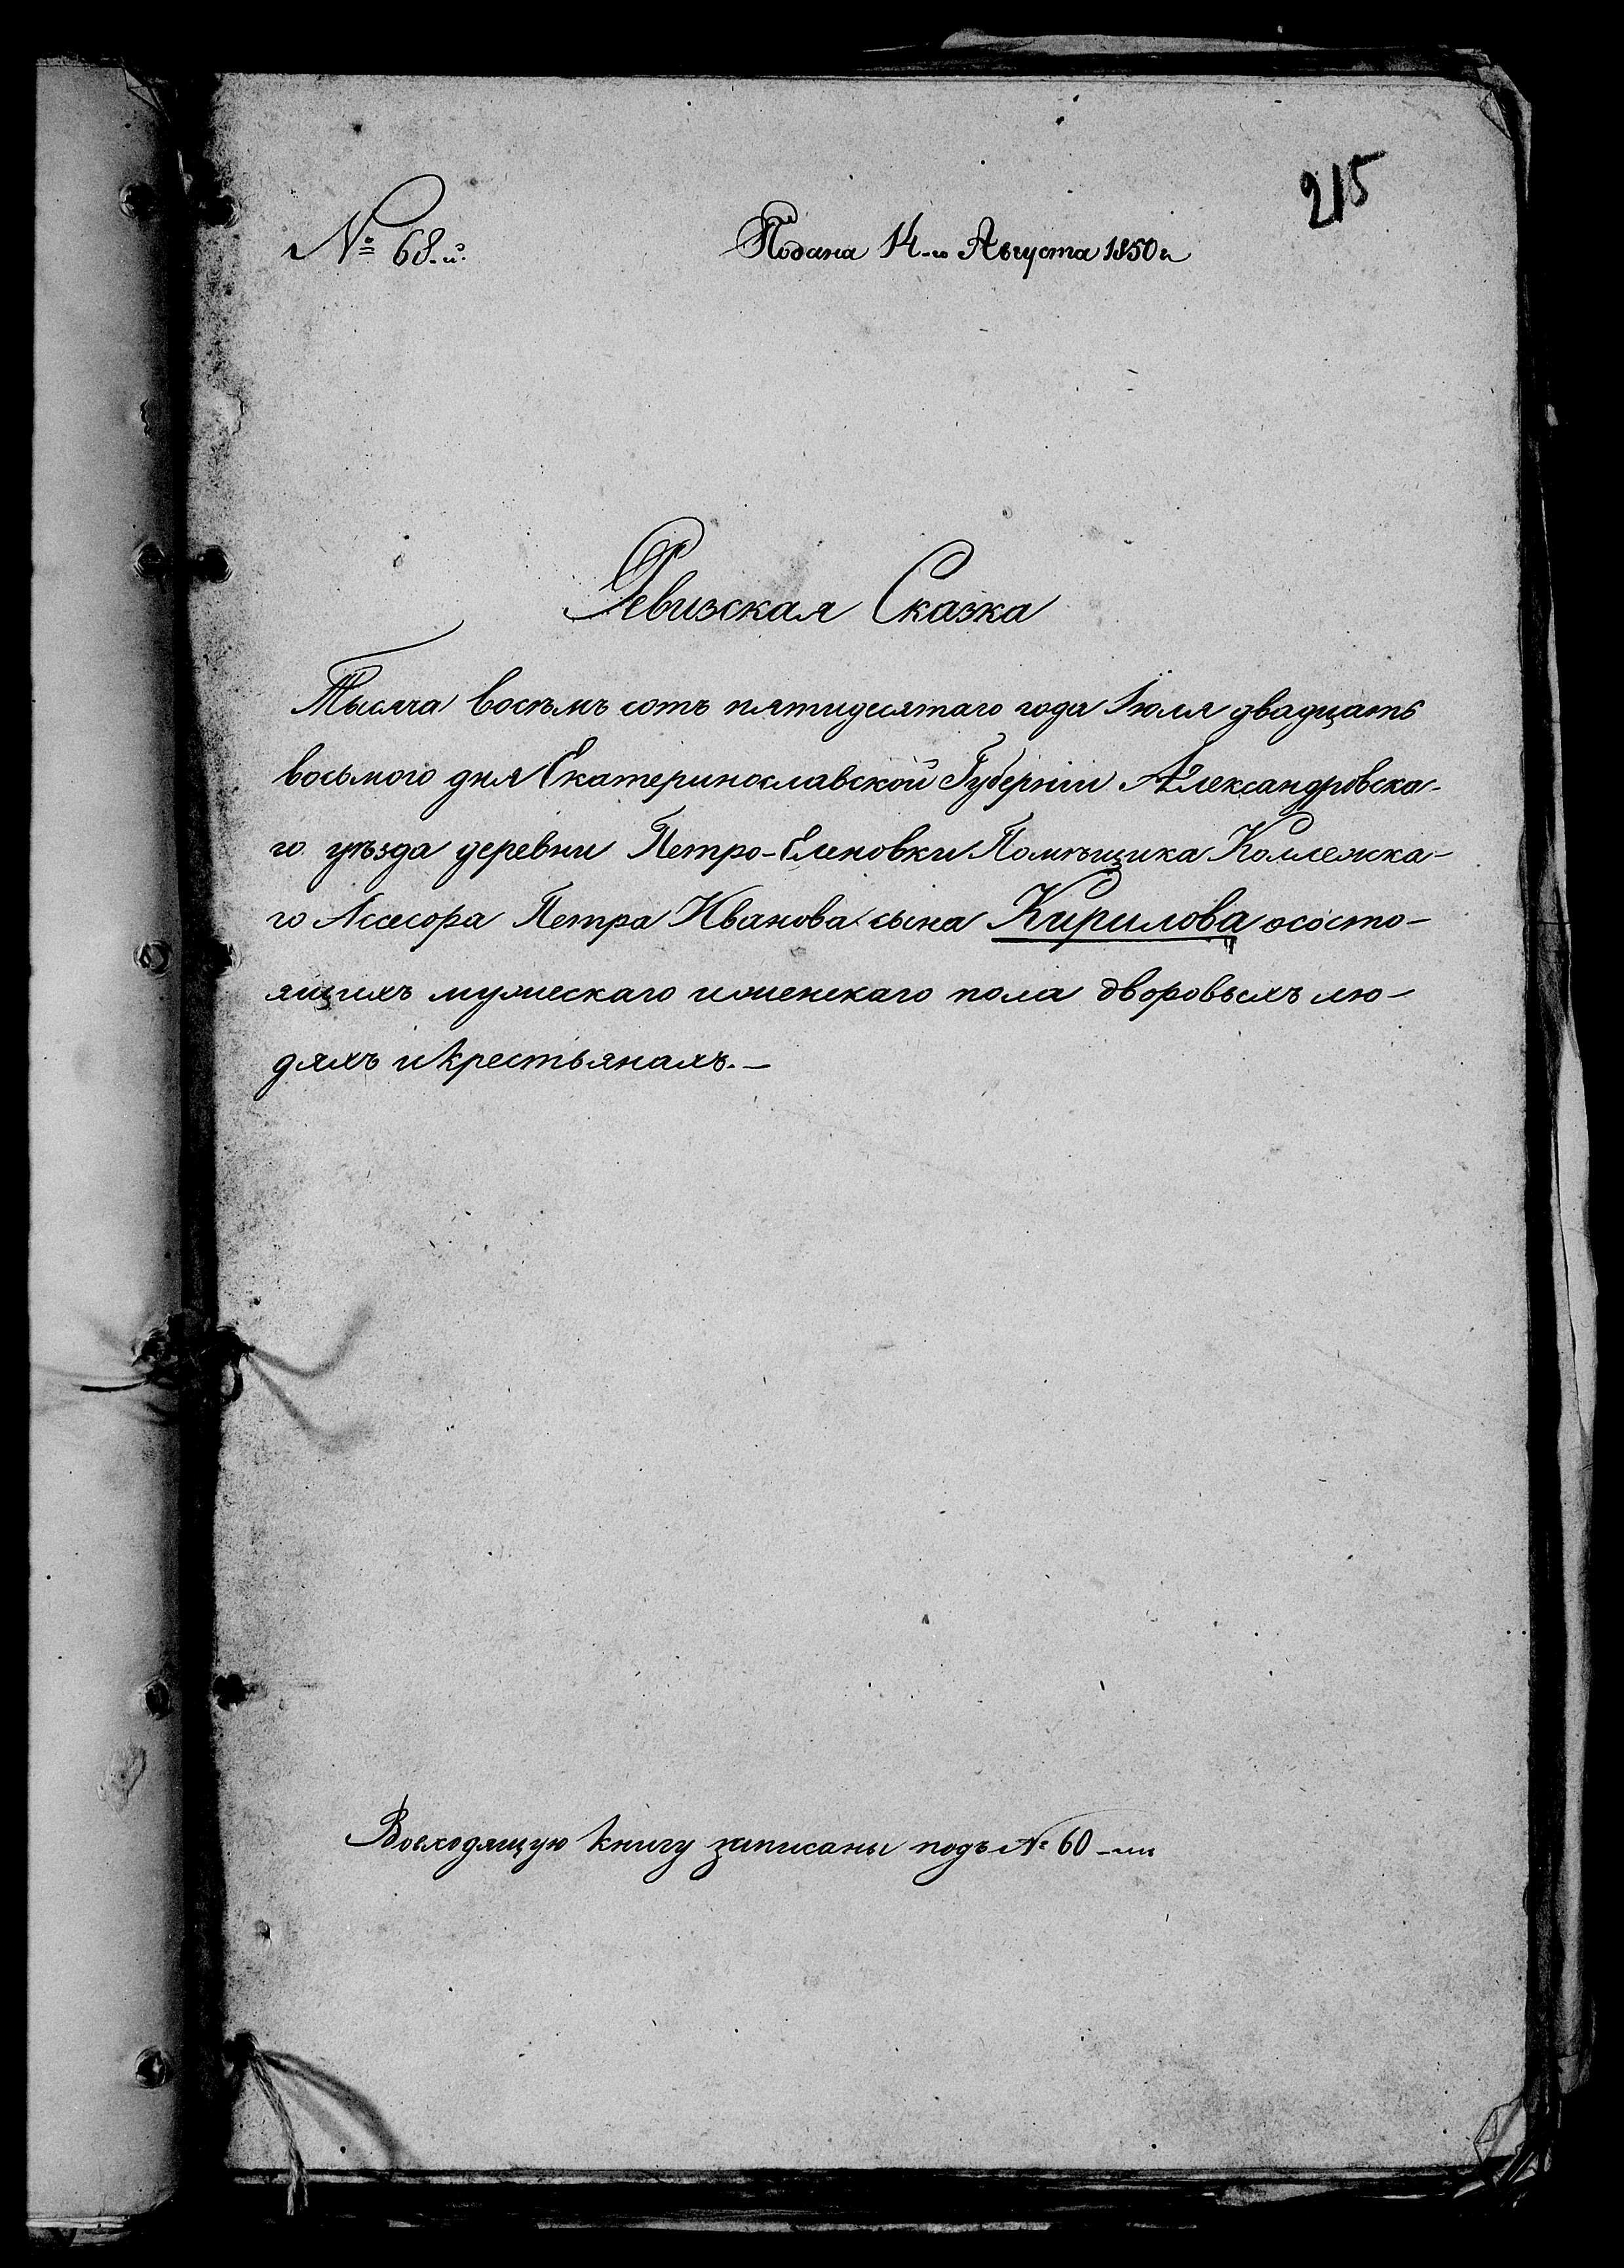 215
№ 68.й.
Подана 14-го Августа 1850 г.
Ревизская Сказка
Тысяча восѣмъ сотъ пятидесятаго года Іюля двадцать
восьмого дня Екатеринославской Губерніи Александровска-
го уѣзда деревни Петро-Еленовки Помѣщика Коллежска-
го Ассесора Петра Иванова сына Кирилова ососто-
ящихъ мужескаго иженскаго пола дворовыхъ лю-
дяхъ икрестьянахъ.-
Вовходящую книгу записаны подъ № 60-мъ